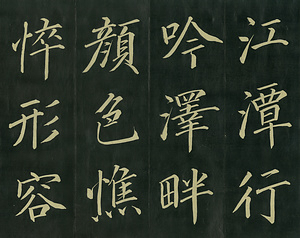 江潭行
吟澤畔
顏色憔
悴形容